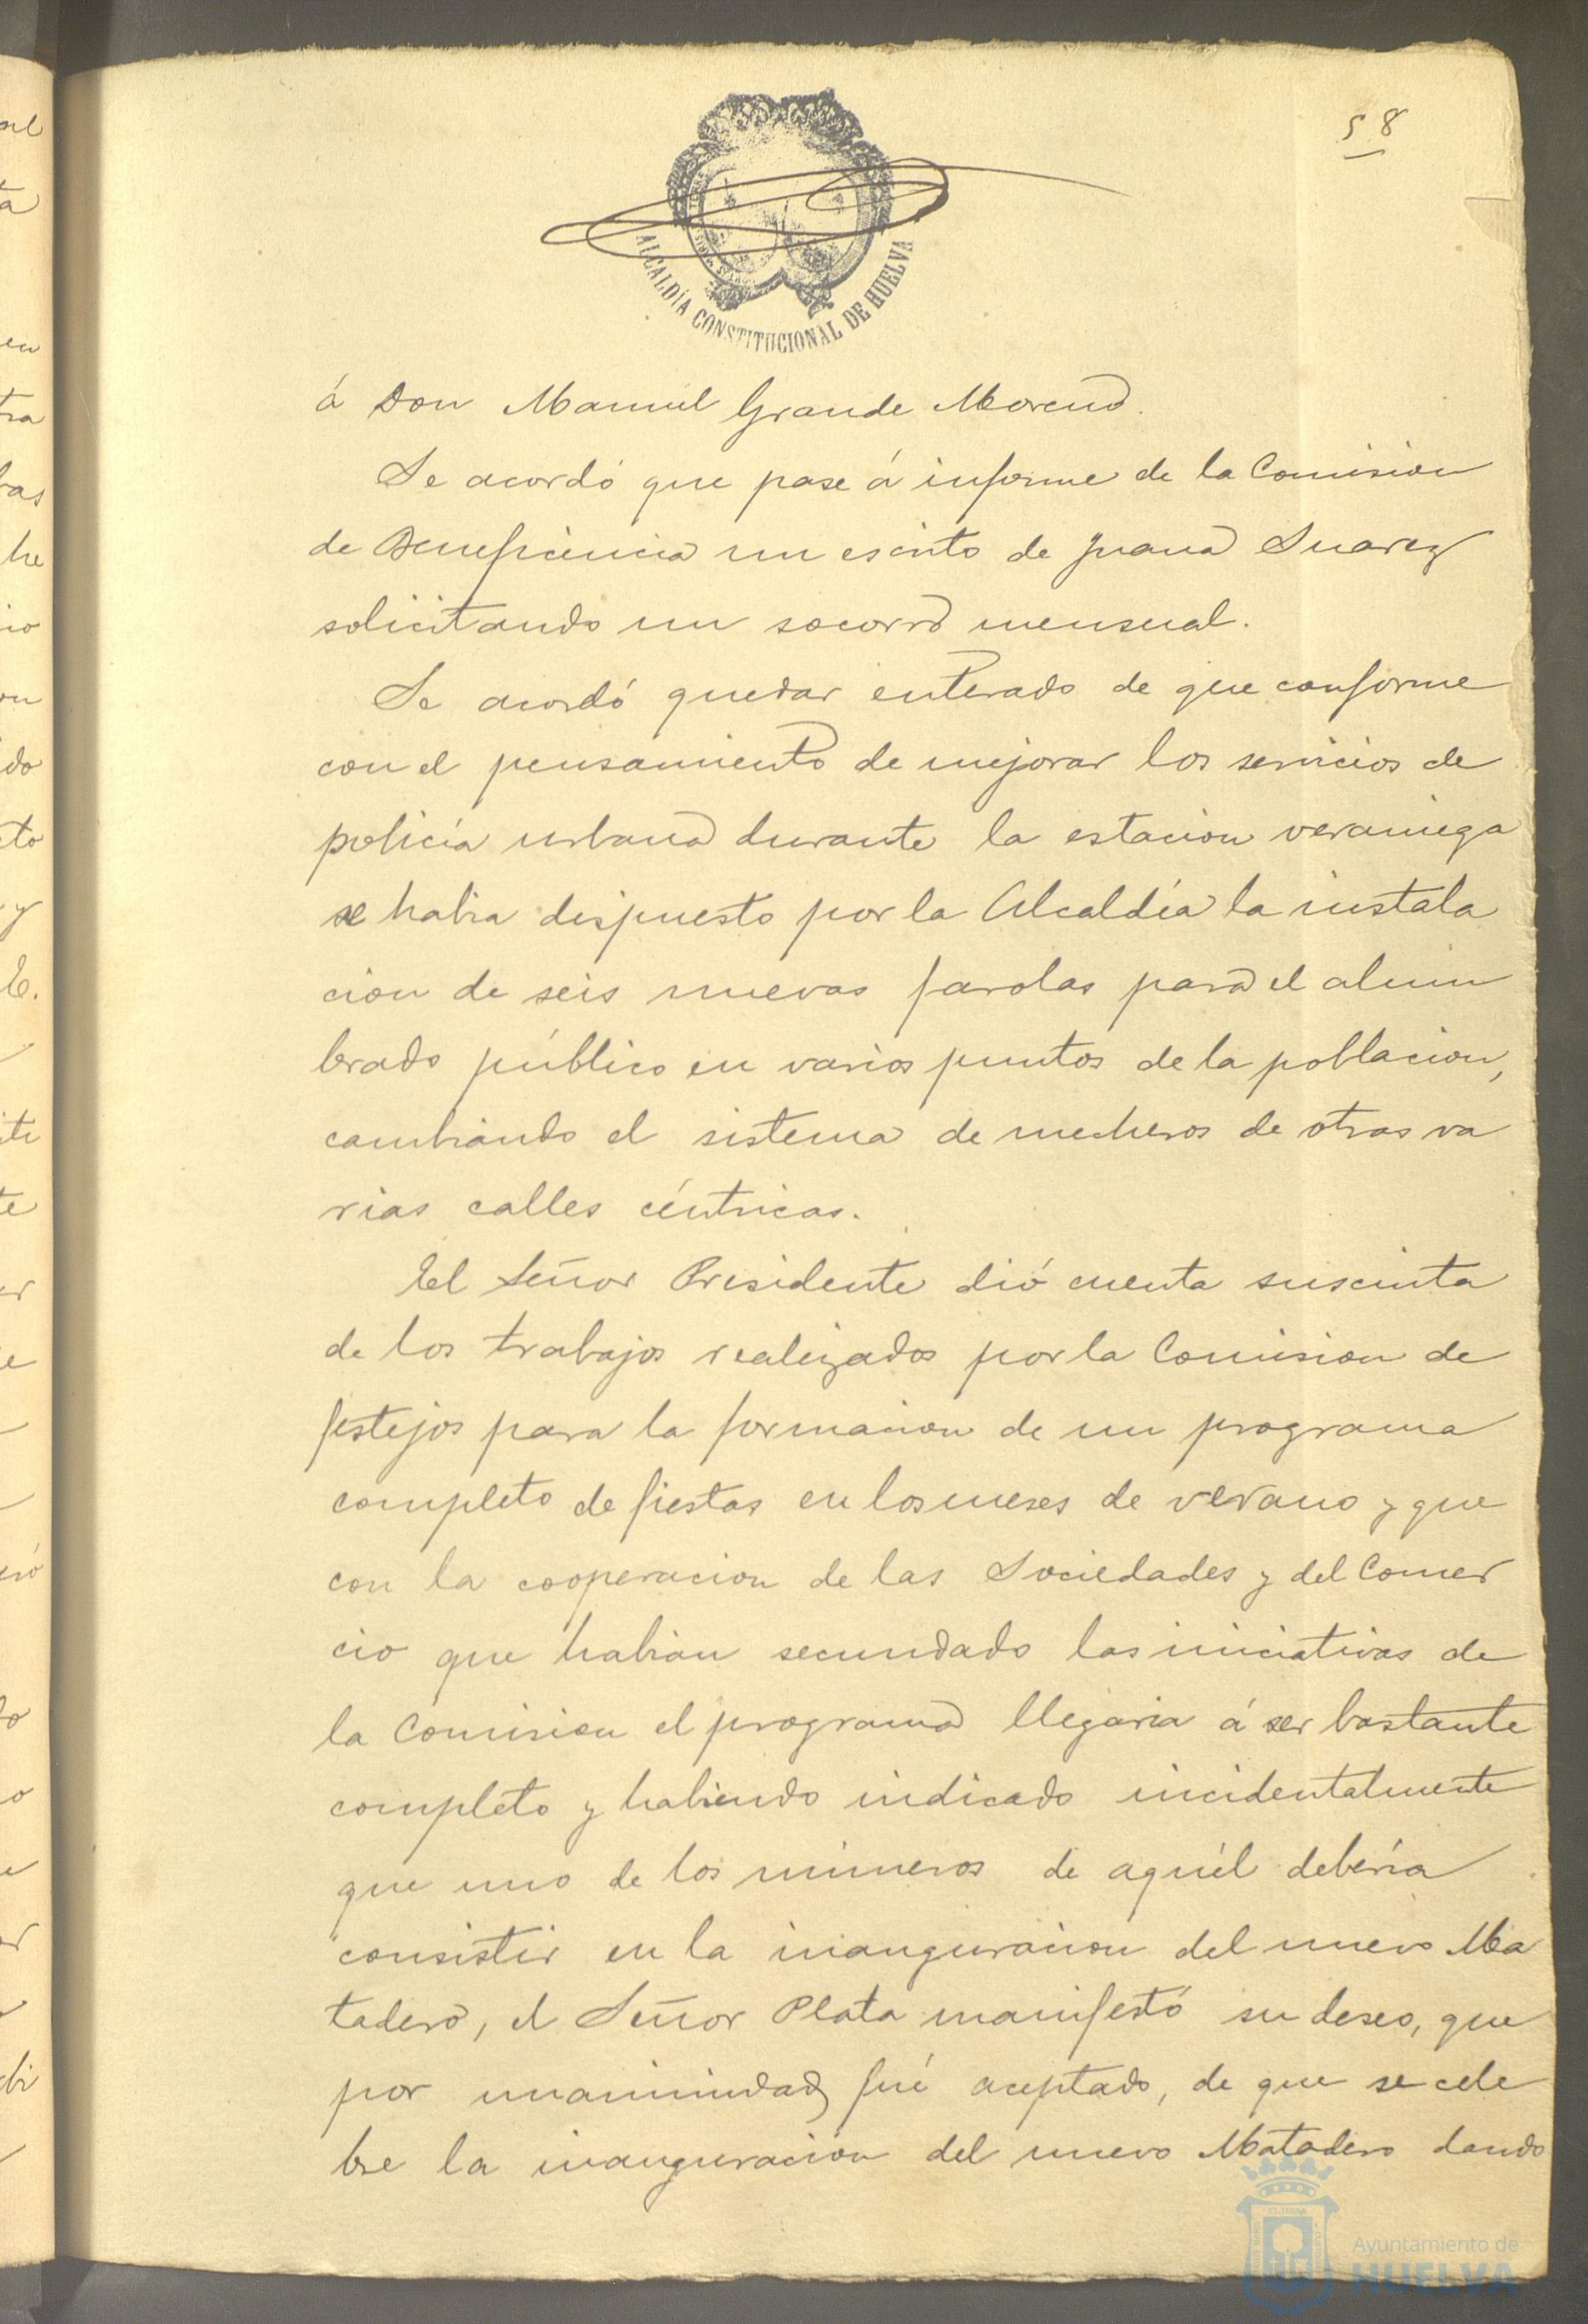 58
ALCALDÍA CONSTITUCIONAL DE HUELVA
á Don Manuel Grande Moreno.
Se acordó que pase á informe de la Comision
de Beneficiencia un escrito de Juana Suarez
solicitando un socorro mensual.
Se acordó quedar enterado de que conforme
con el pensamiento de mejorar los servicios de
policía urbana durante la estacion veraniega
se habia dispuesto por la Alcaldía la instala
cion de seis nuevas farolas para el alum
brado público en varios puntos de la poblacion,
cambiando el sistema de mecheros de otras va
rias calles céntricas.
El Señor Presidente dió cuenta suscinta
de los trabajos realizados por la Comision de
festejos para la formacion de un programa
completo de fiestas en los meses de verano y que
con la cooperacion de las Sociedades y del Comer
cio que habian secundado las iniciativas de
la Comision el programa llegaria á ser bastante
completo y habiendo indicado incidentalmente
que uno de los números de aquél debería
consistir en la inauguracion del nuevo Ma
tadero, el Señor Plata manifestó su deseo, que
por unanimidad fué aceptado, de que se cele
bre la inauguracion del nuevo Matadero dando
Ayuntamiento de
HUELVA